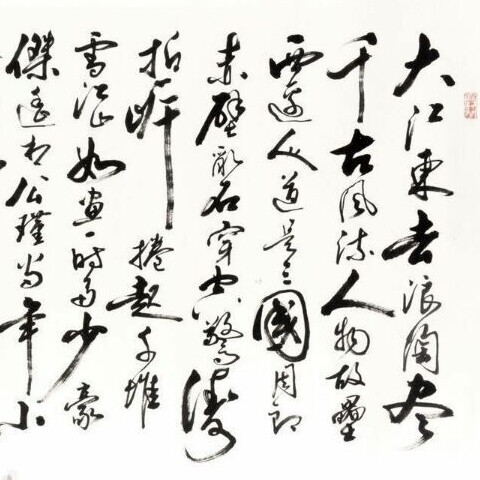 大江東去浪淘盡
千古風流人物故壘
西邊人道是三國周郎
赤壁亂石穿空驚濤
拍岸捲起千堆
雪江山如畫一時多少豪
傑遙想公瑾當年小